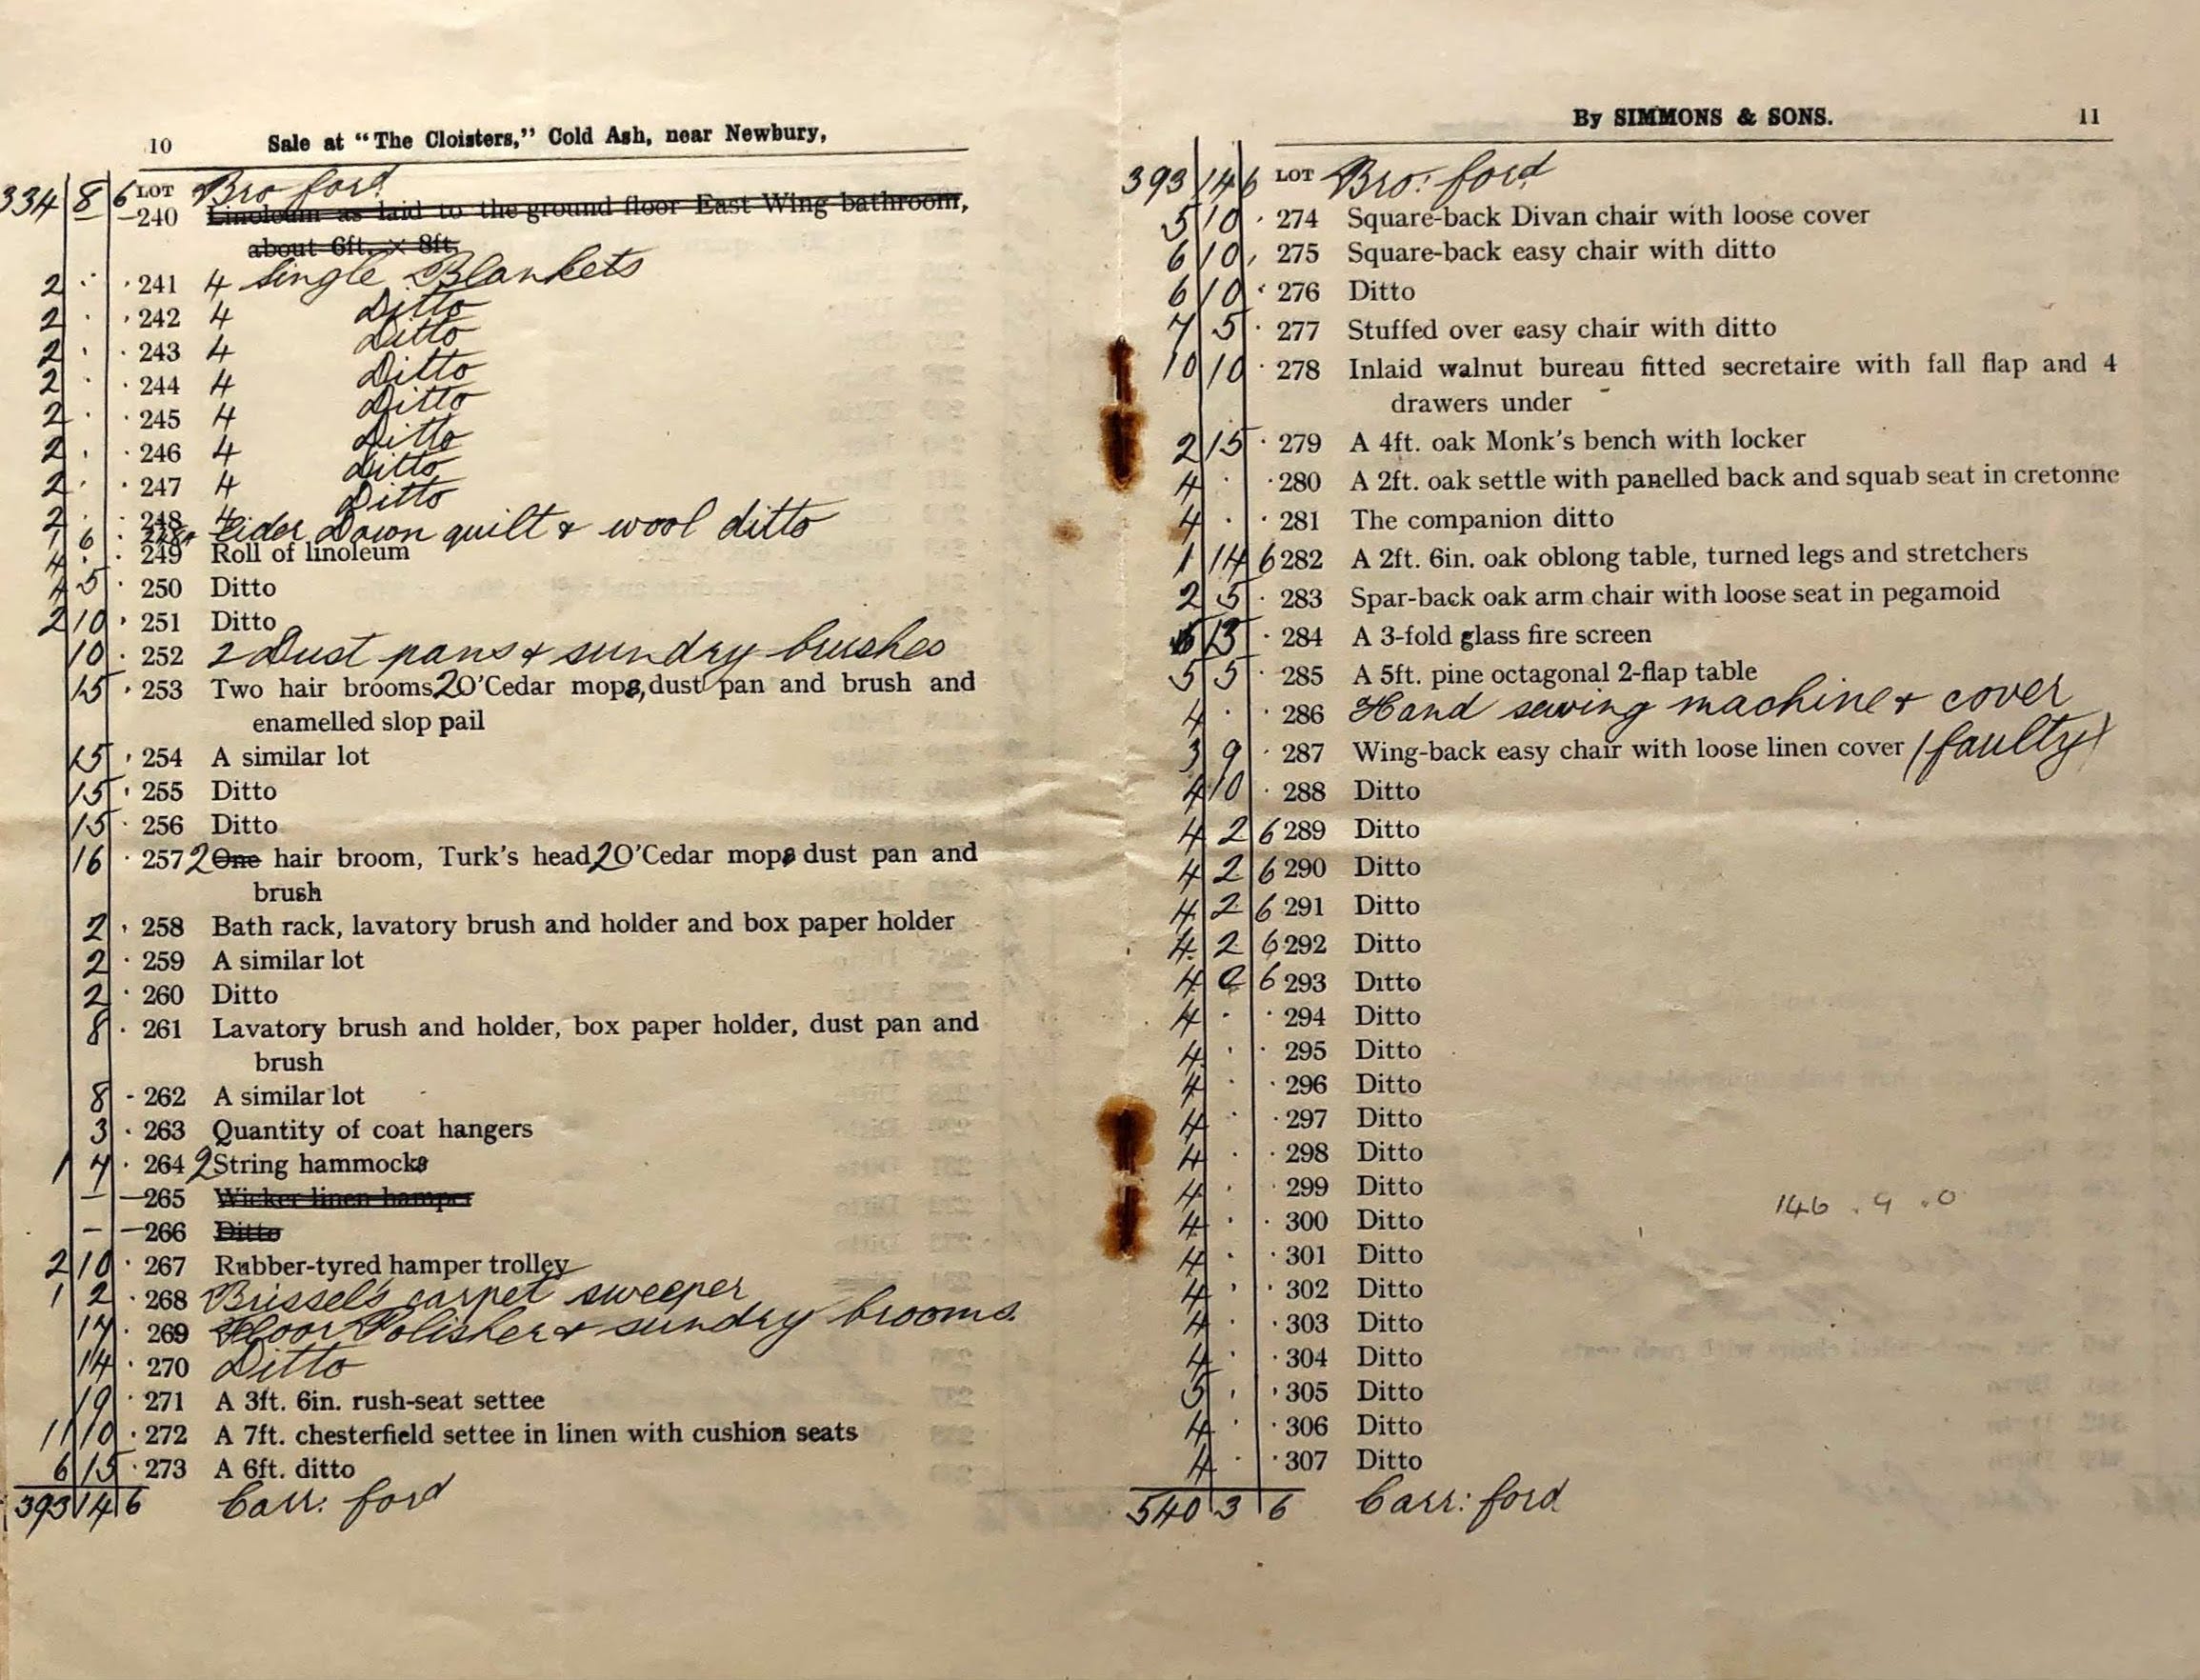 10 Sale at "The Cloisters," Cold Ash, near Newbury,
334 8 6 LOT Bro ford
— — 240 Linoleum as laid to the ground floor East Wing bathroom,
about 6ft. × 8ft.
2 · · 241 4 Single Blankets
2 · · 242 4 Ditto
2 · · 243 4 Ditto
2 · · 244 4 Ditto
2 · · 245 4 Ditto
2 · · 246 4 Ditto
2 · · 247 4 Ditto
2 · · 248 4 Ditto
1 6 · Eider Down quilt & wool ditto
4 · · 249 Roll of linoleum
4 5 · 250 Ditto
2 10 · 251 Ditto
10 · 252 2 Dust pans & sundry brushes
15 · 253 Two hair brooms 2 O'Cedar mops, dust pan and brush and
enamelled slop pail
15 · 254 A similar lot
15 · 255 Ditto
15 · 256 Ditto
16 · 257 2 One hair broom, Turk's head 2 O'Cedar mops dust pan and
brush
2 · 258 Bath rack, lavatory brush and holder and box paper holder
2 · 259 A similar lot
2 · 260 Ditto
8 · 261 Lavatory brush and holder, box paper holder, dust pan and
brush
8 - 262 A similar lot
3 · 263 Quantity of coat hangers
1 7 · 264 2 String hammocks
— — 265 Wicker linen hamper
— — 266 Ditto
2 10 · 267 Rubber-tyred hamper trolley
1 2 · 268 Brissels carpet sweeper
17 · 269 Floor Polisher & sundry brooms.
14 · 270 Ditto
19 · 271 A 3ft. 6in. rush-seat settee
11 10 · 272 A 7ft. chesterfield settee in linen with cushion seats
6 15 · 273 A 6ft. ditto
393 14 6 Carr: ford
By SIMMONS & SONS. 11
393 14 6 LOT Bro: ford
5 10 · 274 Square-back Divan chair with loose cover
6 10 · 275 Square-back easy chair with ditto
6 10 · 276 Ditto
7 5 · 277 Stuffed over easy chair with ditto
10 10 · 278 Inlaid walnut bureau fitted secretaire with fall flap and 4
drawers under
2 15 · 279 A 4ft. oak Monk's bench with locker
4 · · 280 A 2ft. oak settle with panelled back and squab seat in cretonne
4 · · 281 The companion ditto
1 14 6 282 A 2ft. 6in. oak oblong table, turned legs and stretchers
2 5 · 283 Spar-back oak arm chair with loose seat in pegamoid
13 · 284 A 3-fold glass fire screen
5 5 · 285 A 5ft. pine octagonal 2-flap table
4 · · 286 Hand sewing machine & cover
3 9 · 287 Wing-back easy chair with loose linen cover (faulty)
4 10 · 288 Ditto
4 2 6 289 Ditto
4 2 6 290 Ditto
4 2 6 291 Ditto
4 2 6 292 Ditto
4 2 6 293 Ditto
4 · · 294 Ditto
4 · · 295 Ditto
4 · · 296 Ditto
4 · · 297 Ditto
4 · · 298 Ditto
4 · · 299 Ditto
4 · · 300 Ditto
146 . 9 . 0
4 · · 301 Ditto
4 · · 302 Ditto
4 · · 303 Ditto
4 · · 304 Ditto
5 · · 305 Ditto
4 · · 306 Ditto
4 · · 307 Ditto
540 3 6 Carr: ford